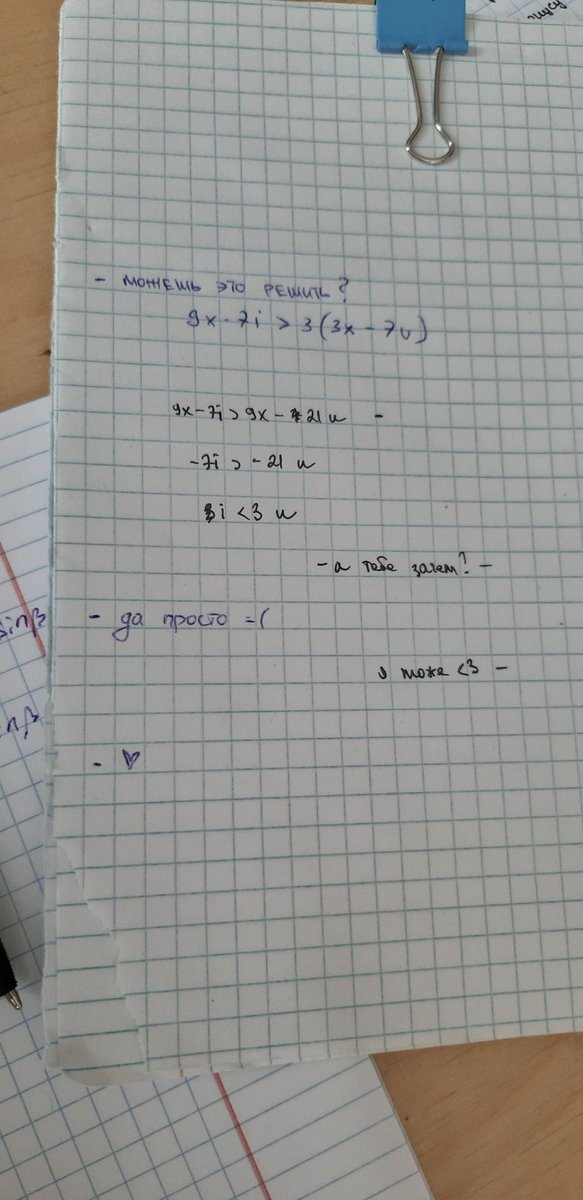 - можешь это решить?
9x - 7i > 3(3x - 7u)
9x - 7i > 9x - 21 u -
-7i > -21 u
i < 3 u
- а тебе зачем? -
- да просто =(
я тоже <3 -
- ♥
sinβ
nβ